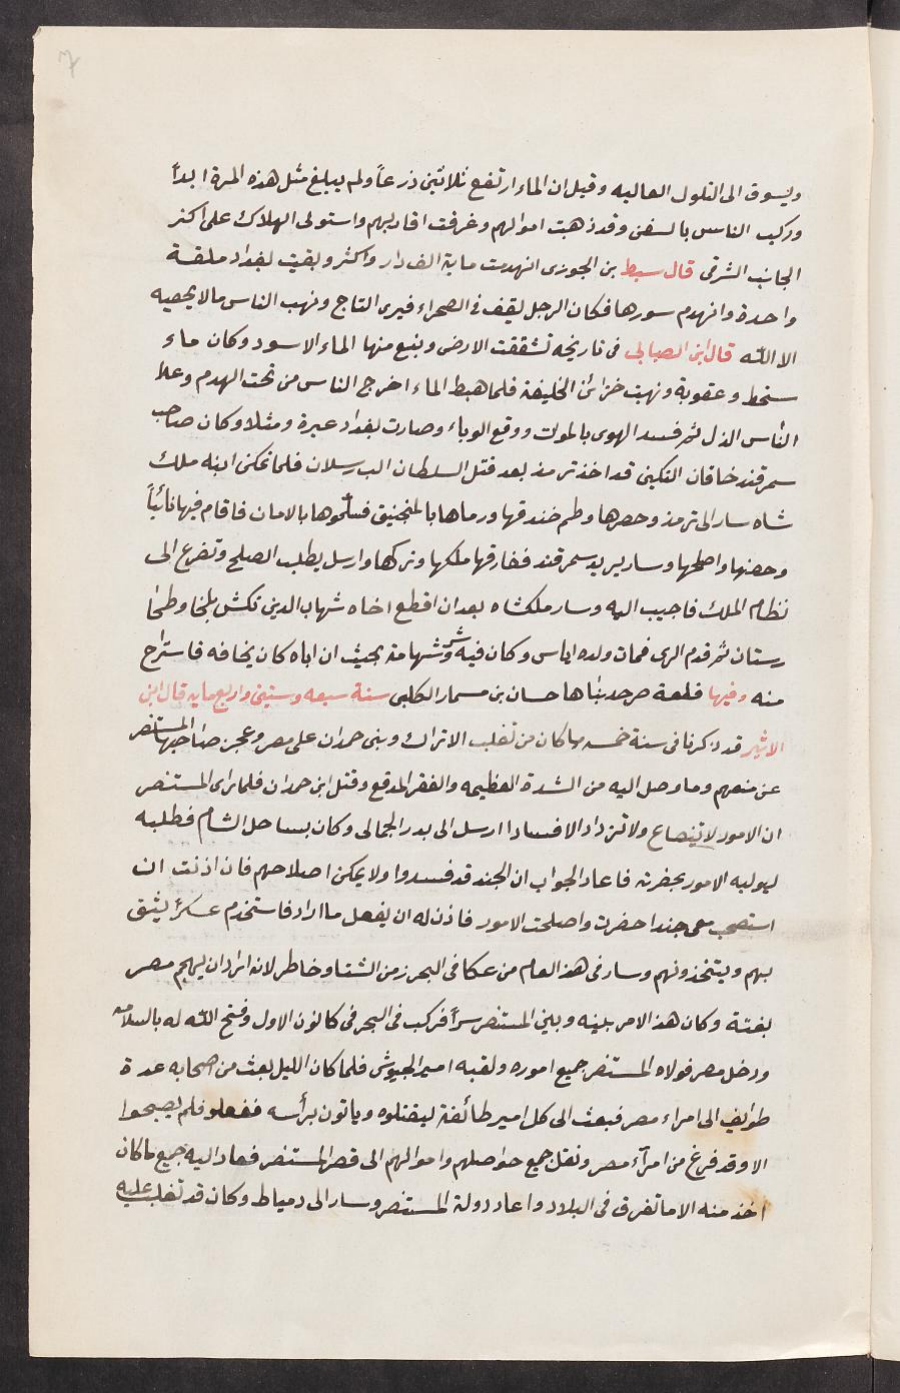 7
ويسوق الى التلول العاليه وقيل ان الماء ارتفع ثلاثين ذرعاً ولم يبلغ مثل هذه المرة ابداً
وركب الناس بالسفن وقد ذهبت اموالهم وغرقت اقاربهم واستولى الهلاك على اكثر
الجانب الشرقى قال سبط بن الجوزى انهدمت ماية الف دار واكثر وبقيت بغداد ملقة
واحدة وانهدم سورها فكان الرجل يقف فى الصحراء فيرى التاج ونهب الناس مالا يحصيه
الا الله قال ابن الصابى فى تاريخه تشققت الارض ونبع منها الماء الاسود وكان ماء
سخط وعقوبة ونهبت خزائن الخليفة فلما هبط الماء اخرج الناس من تحت الهدم وعلا
الناس الذل ثم فسد الهوى بالموت ووقع الوباء وصارت بغداد عبرة ومثلا وكان صاحب
سمرقند خاقان التكين قد اخذ ترمذ بعد قتل السلطان الب رسلان فلما تمكن ابنه ملك
شاه سار الى ترمذ وحصرها وطم خندقها ورماها بالمنجنيق فسلموها بالامان فاقام فيها نائباً
وحصنها واصلحها وسار يريد سمرقند ففارقها ملكها وتركها وارسل يطلب الصلح وتضرع الى
نظام الملك فاجيب اليه وسار ملكشاه بعد ان اقطع اخاه شهاب الدين تكش بلخا وطخا
رستان ثم قدم الرى فمات ولده اياس وكان فيه شر وشهامة بحيث ان اباه كان يخافه فاستراح
منه وفيها قلعة صرحد بناها حسان بن مسمار الكلبى سنة سبعه وستين واربعمايه قال ابن
الاثير قد ذكرنا فى سنة خمسه ما كان من تغلب الاتراك وبنى حمدان على مصر وعجز صاحبها المستنصر
عن منعهم وما وصل اليه من الشدة العظيمه والفقر المدقع وقتل ابن حمدان فلما راى المستنصر
ان الامور لا تنصاع ولا تزداد الا فسادا ارسل الى بدر الجمالى وكان بساحل الشام فطلبه
ليوليه الامور بحضرته فاعاد الجواب ان الجند قد فسدوا ولا يمكن اصلاحهم فان اذنت ان
استصحب معى جندا حضرت واصلحت الامور فاذن له ان يفعل ما اراد فاستخدم عسكراً يثق
بهم ويتخذونهم وسار فى هذ العام من عكا فى البحر زمن الشتا وخاطر لانه اراد ان يهجم مصر
بغتة وكان هذ الامر بينه وبين المستنصر سراً فركب فى البحر فى كانون الاول وفتح الله له بالسلامه
ودخل مصر فولاه المستنصر جميع اموره ولقبه امير الجيوش فلما كان الليل بعث من اصحابه عدة
طوايف الى امراء مصر فبعث الى كل امير طائفة ليقتلوه وياتون براسه ففعلو فلم يصبحوا
الا وقد فرغ من امراء مصر ونقل جميع حواصلهم واموالهم الى قصر المستنصر فعاد اليه جميع ما كان
اخذ منه الا ما تفرق فى البلاد واعاد دولة المستنصر وسار الى دمياط وكان قد تغلب عليه